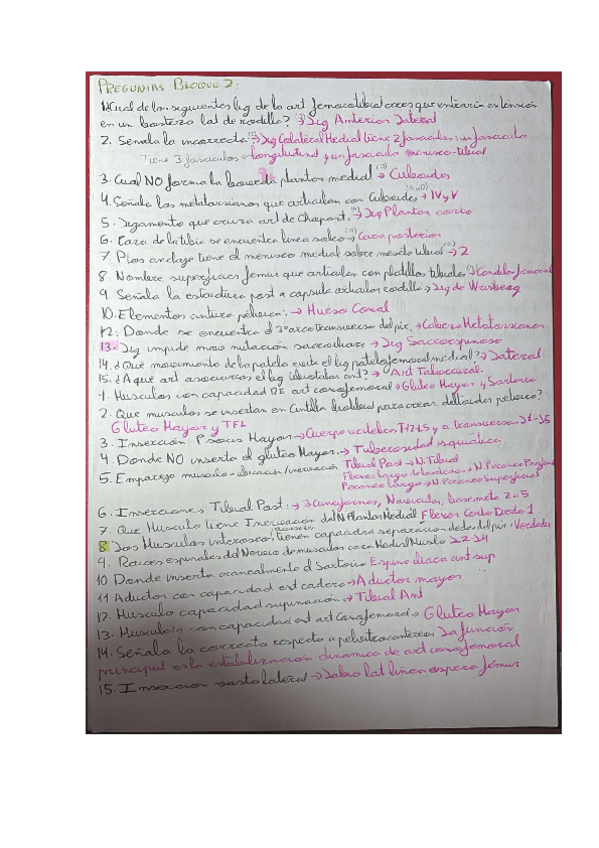 PREGUNTAS BLOQUE 2:
1. Cual de los siguientes lig de la art femorotibial crees que entraria en tensión
en un bostezo lat de rodilla? → Lig Anterior Lateral
2. Señala la incorrecta → Lig Colateral Medial tiene 2 fasciculos: un fasciculo
Tiene 3 fasciculos longitudinal y un fasciculo menisco-tibial
3. Cual NO forma la boveda plantar medial → Cuboides
4. Señala los metatarsianos que articulan con Cuboides → IV y V
5. Ligamento que cruza art de Chopart. → Lig Plantar corto
6. Cara de la tibia se encuentra linea soleo → Cara posterior
7. Pios anclaje tiene el menisco medial sobre meseta tibial → 2
8. Nombre superficies femur que articulan con platillos tibiales → Condilo femoral
9. Señala la estructura post a capsula articular rodilla → Lig de Wrisberg
10. Elementos cintura pelvica: → Hueso Coxal
12. Donde se encuentra el 3º arco transverso del pie. → Cabeza Metatarsianos
13. Lig impide mov nutación sacroiliaca → Lig Sacroespinoso
14. ¿Que movimiento de la patela evita el lig patelofemoral medial? → Lateral
15. ¿A que art asocias el lig tibioastragalino ant? → Art Talocrural.
1. Musculos con capacidad RE art coxofemoral → Gluteo Mayor y Sartorio
2. Que musculos se insertan en Cintilla Iliotibial para crear deltoides pelvico?
Gluteo Mayor y TFL
3. Inserción Psoas Mayor → Cuerpo vertebral T12-L5 y a. transversas L1-L5
4. Donde NO inserta el gluteo Mayor. → Tuberosidad isquiatica
5. Empareja musculo - ubicación/inervación Tibial Post → N. Tibial
Peroneo Largo → N. Peroneo Superficial
6. Inserciones Tibial Post: → 3 cuneiformes, Navicular, base meta 2 a 5
7. Que Musculo tiene Inervación del N Plantar Medial Flexor Corto Dedo 1
8. Los Musculos interoseos tienen capacidad separación dedos del pie: Verdadera
9. Raices espinales del Nervio de musculos cara Medial Muslo L2-L4
10 Donde inserta cranealmente el Sartorio Espina iliaca ant sup
11 Aductor con capacidad ext cadera → Aductor mayor
12. Musculo capacidad supinación → Tibial Ant
13. Musculo con capacidad ext art Coxofemoral → Gluteo Mayor
14. Señala la correcta respecto a pelvitrocantereos La función
principal es la estabilización dinamica de art coxofemoral
15. Inserción vasto lateral → Labio lat linea aspera fémur